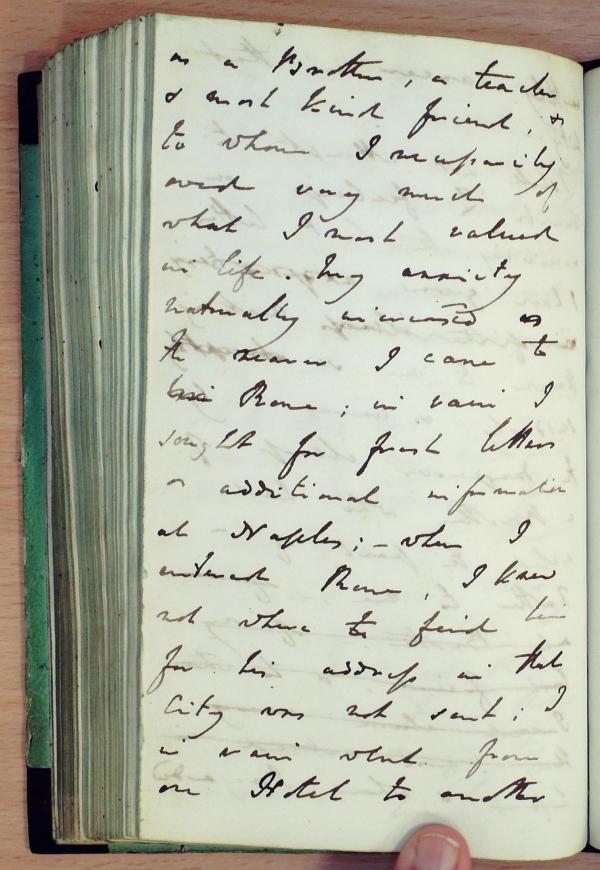 as a Brother, a teacher
& most kind friend, &
to whom I unsparingly
owed very much of
what I most valued
in life. My anxiety
naturally increased as
the nearer I came to
Rome; in vain I
sought for fresh letters
or additional information
at Naples; – when I
entered Rome, I knew
not where to find him
for his address in that
City was not sent; I
in vain went from
one Hotel to another